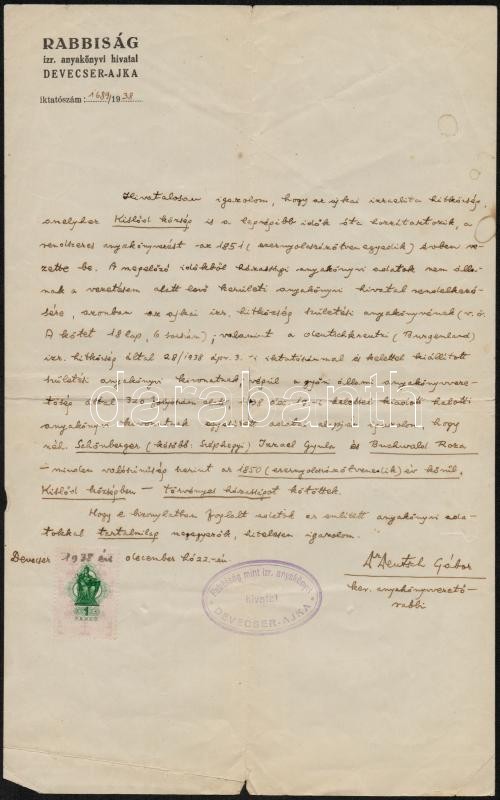 RABBISÁG
izr. anyakönyvi hivatal
DEVECSER-AJKA
iktatószám: 1689/1938
Hivatalosan igazolom, hogy az ajkai izraelita hitközség,
amelyhez Kislőd község is a legrégibb idők óta hozzátartozik, a
rendszeres anyakönyvezést az 1851 (ezernyolcszázötvenegyedik) évben ve-
zette be. A megelőző időkből házassági anyakönyvi adatok nem álla-
nak a vezetésem alatt levő kerületi anyakönyvi hivatal rendelkezé-
sére, azonban az ajkai izr. hitközség születési anyakönyvének (v.ö.
A kötet 18 lap, 6 sorszám), valamint a deutschkreutzi (Burgenland)
izr. hitközség által 28/1938 ápr. 3.-i iktatószámmal és kelettel kiállított
születési anyakönyvi kivonatnak, végül a győri állami anyakönyvve-
zetőség által 320 folyószám alatt, kelettel kiadott halotti
anyakönyvi kivonatnak egyesített adatai alapján igazolom, hogy
néh. Schönberger (később: Széphegyi) Izrael Gyula és Buchwald Roza
– minden valószínűség szerint az 1850 (ezernyolcszázötvenedik) év körül,
Kislőd községben – törvényes házasságot kötöttek.
Hogy e bizonylatban foglalt adatok az említett anyakönyvi ada-
tokkal tartalmilag megegyezők, hitelesen igazolom.
Devecser 1938 évi december hó 22-én.
Dr Deutsch Gábor
ker. anyakönyvvezető-
rabbi
Rabbiság mint izr. anyakönyvi
hivatal
DEVECSER-AJKA
1
PENGŐ
darabanth